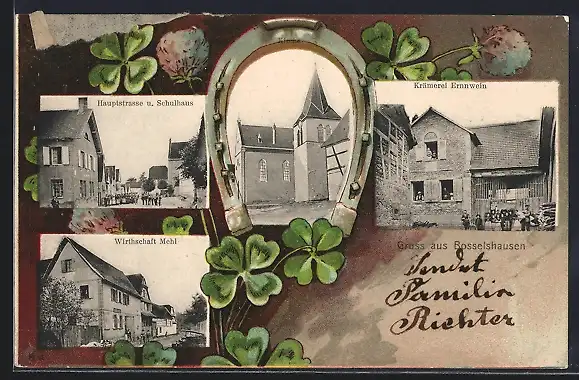 Hauptstrasse u. Schulhaus
Krämerei Ernnwein
Wirthschaft Mehl
Gruss aus Bosselshausen
Sendet
Familie
Richter